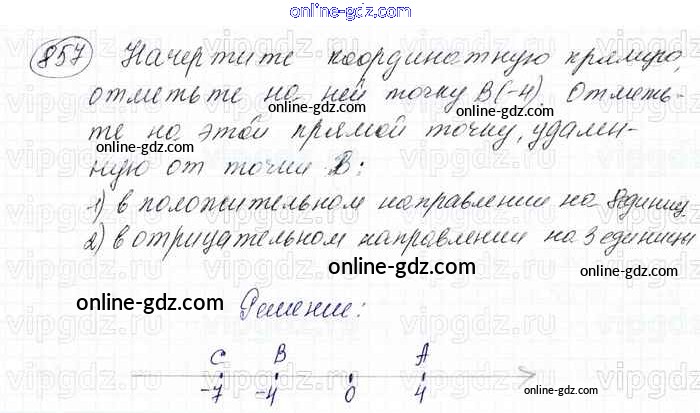 online-gdz.com
857 Начертите координатную прямую,
отметьте на ней точку B(-4). Отметь-
те на этой прямой точку, удален-
ную от точки B:
1) в положительном направлении на 8 единиц
2) в отрицательном направлении на 3 единицы
Решение:
C B A
-7 -4 0 4
online-gdz.com
online-gdz.com
online-gdz.com
online-gdz.com
online-gdz.com
online-gdz.com